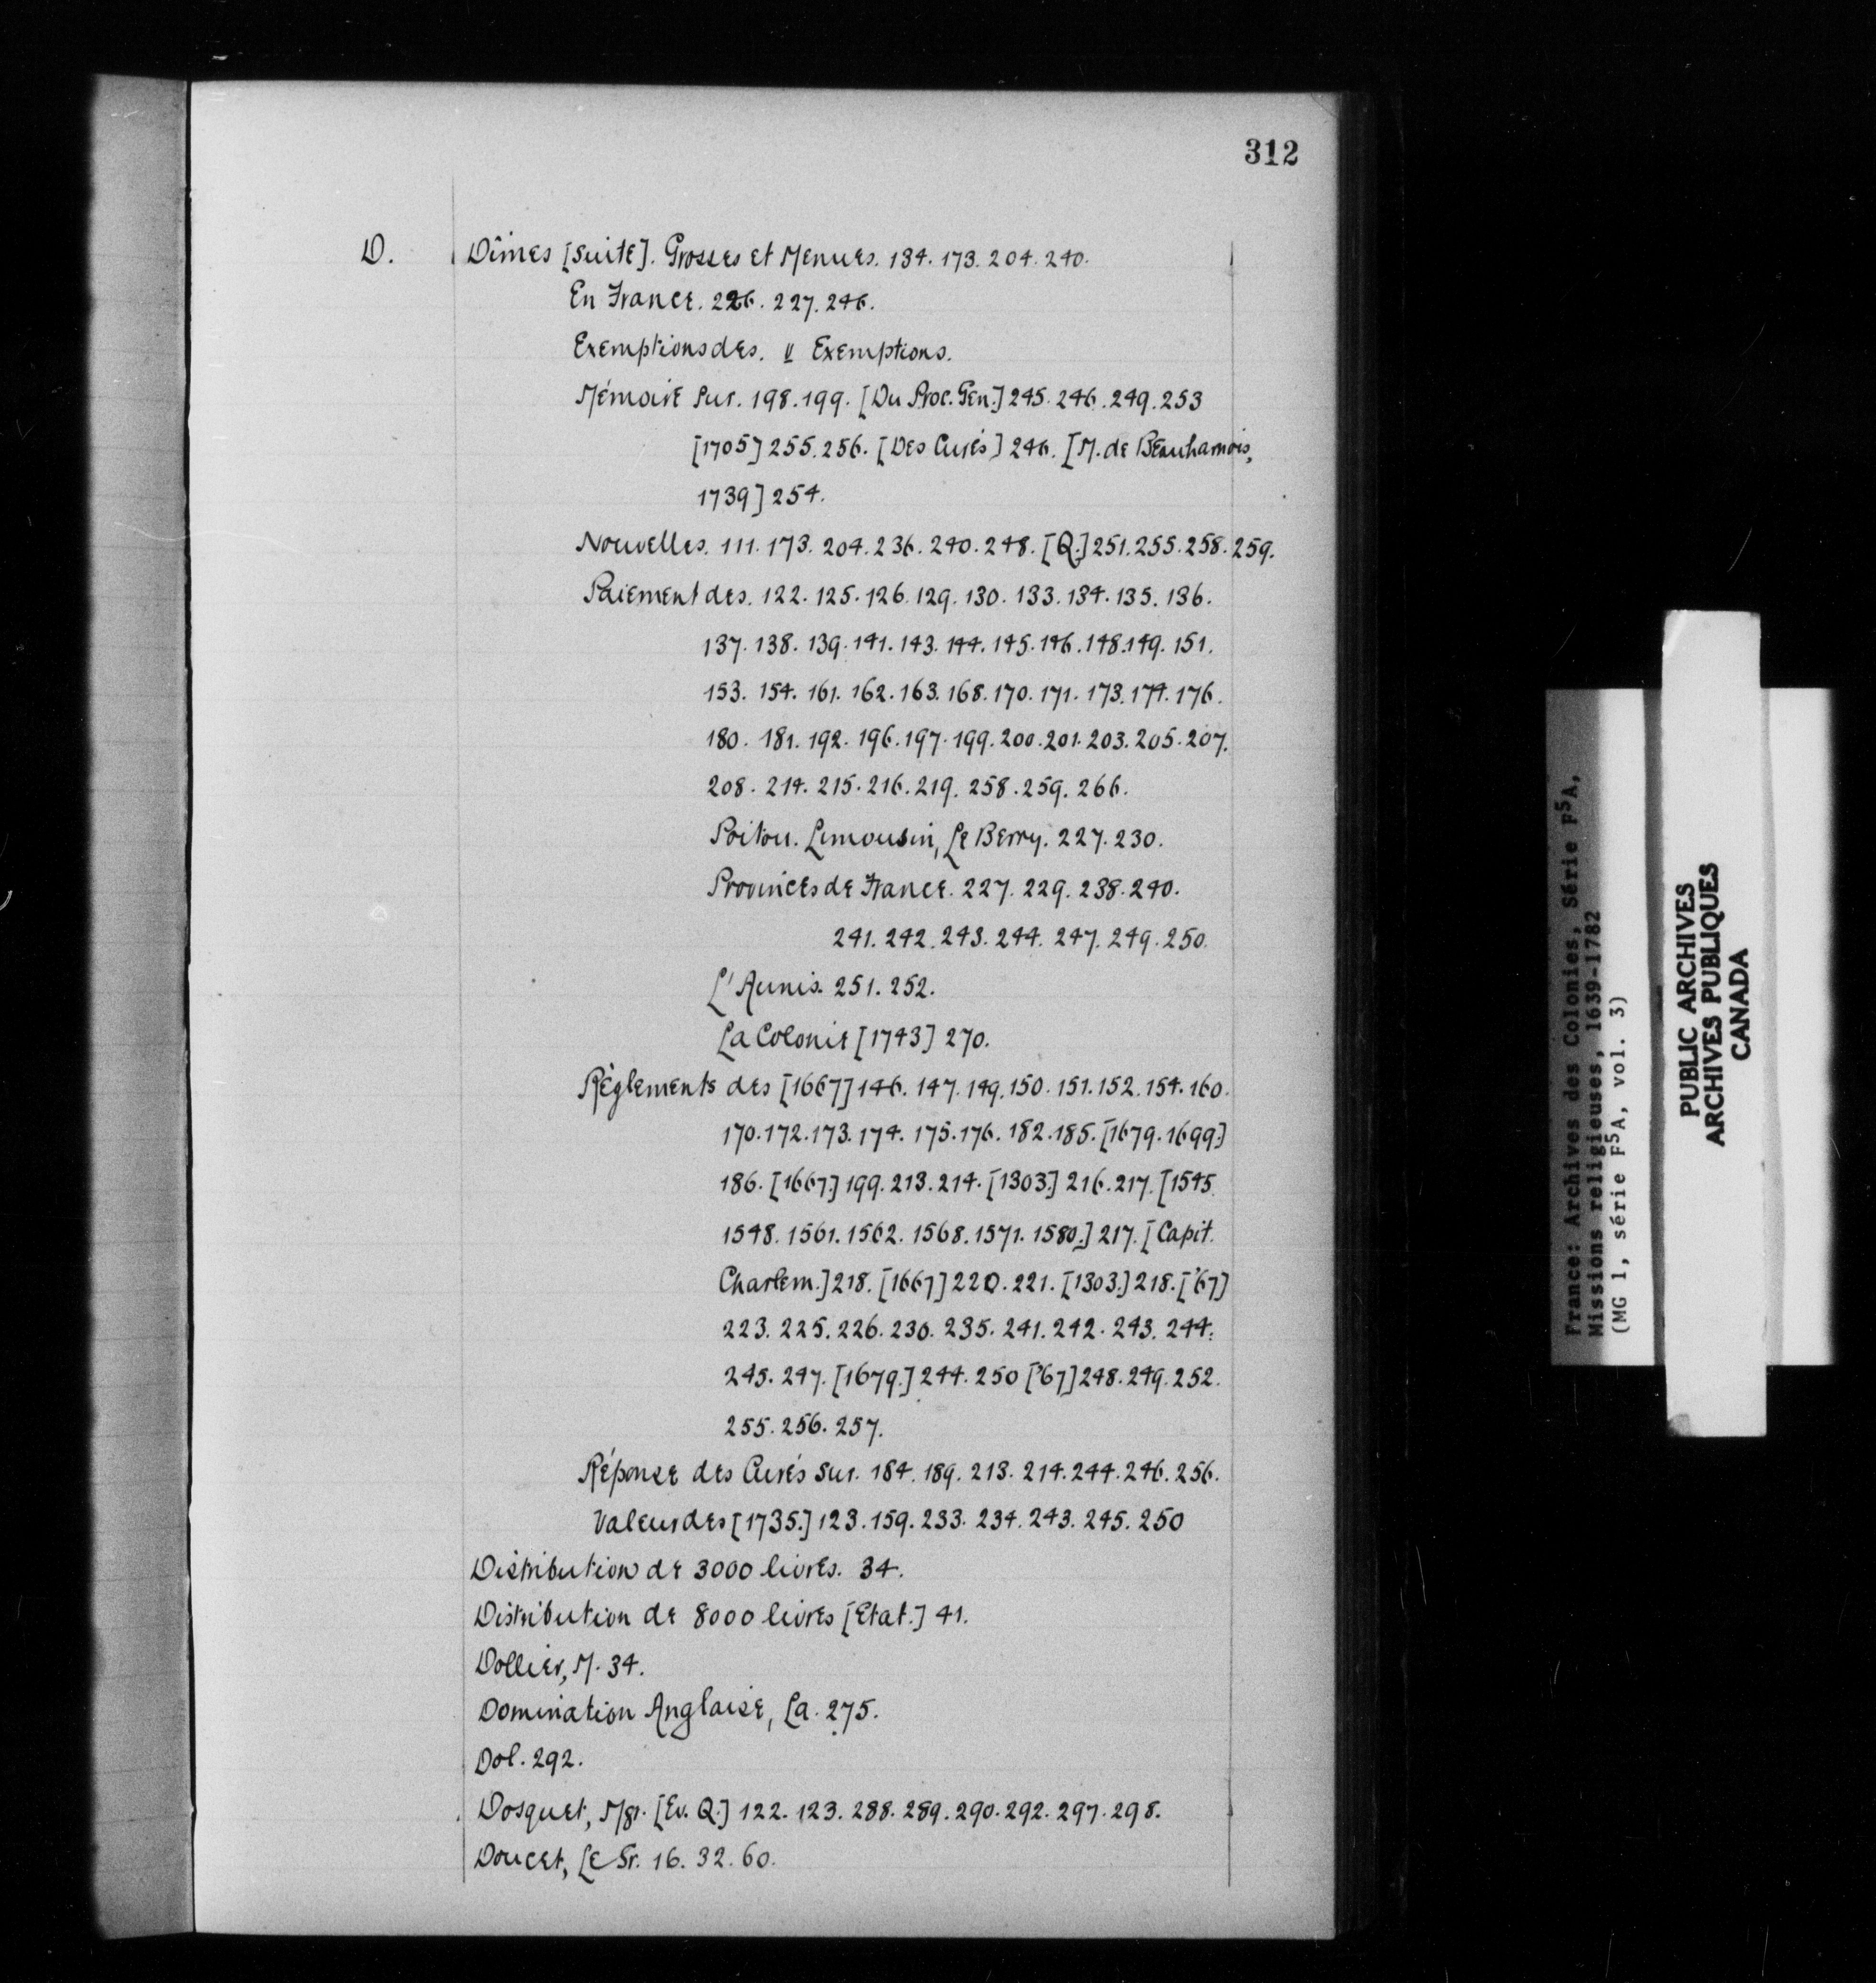 312
D. Dîmes [Suite]. Grosses et Menues. 134. 173. 204. 240.
En France. 226. 227. 246.
Exemptions des. V Exemptions.
Mémoire Sur. 198. 199. [Du Proc. Gen.] 245. 246. 249. 253
[1705] 255. 256. [Des Curés] 246. [M. de Beauharnois,
1739] 254.
Nouvelles. 111. 173. 204. 236. 240. 248. [Q.] 251. 255. 258. 259.
Paiement des. 122. 125. 126. 129. 130. 133. 134. 135. 136.
137. 138. 139. 141. 143. 144. 145. 146. 148. 149. 151.
153. 154. 161. 162. 163. 168. 170. 171. 173. 174. 176.
180. 181. 192. 196. 197. 199. 200. 201. 203. 205. 207.
208. 214. 215. 216. 219. 258. 259. 266.
Poitou. Limousin, Le Berry. 227. 230.
Provinces de France. 227. 229. 238. 240.
241. 242. 243. 244. 247. 249. 250.
L'Aunis. 251. 252.
La Colonie [1743] 270.
Règlements des [1667] 146. 147. 149. 150. 151. 152. 154. 160.
170. 172. 173. 174. 175. 176. 182. 185. [1679. 1699.]
186. [1667.] 199. 213. 214. [1303.] 216. 217. [1545.
1548. 1561. 1562. 1568. 1571. 1580.] 217. [Capit.
Charlem.] 218. [1667] 220. 221. [1303.] 218. ['67]
223. 225. 226. 230. 235. 241. 242. 243. 244.
245. 247. [1679.] 244. 250 ['67] 248. 249. 252.
255. 256. 257.
Réponse des Curés Sur. 184. 189. 213. 214. 244. 246. 256.
Valeur des [1735.] 123. 159. 233. 234. 243. 245. 250
Distribution de 3000 livres. 34.
Distribution de 8000 livres [Etat.] 41.
Dollier, M. 34.
Domination Anglaise, La. 275.
Dol. 292.
Dosquet, Mgr. [Ev. Q.] 122. 123. 288. 289. 290. 292. 297. 298.
Doucet, Le Sr. 16. 32. 60.
France: Archives des Colonies, Série F5A,
Missions religieuses, 1639-1782
(MG 1, série F5A, vol. 3)
PUBLIC ARCHIVES
ARCHIVES PUBLIQUES
CANADA